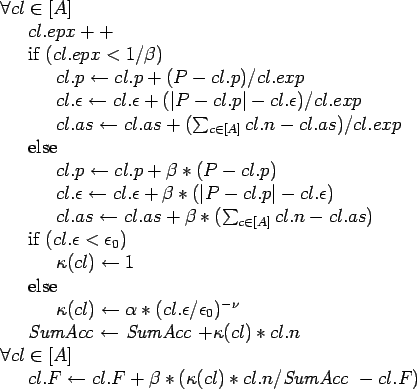 ∀cl ∈ [A]
cl.epx + +
if (cl.epx < 1/β)
cl.p ← cl.p + (P − cl.p)/cl.exp
cl.ϵ ← cl.ϵ + (|P − cl.p| − cl.ϵ)/cl.exp
cl.as ← cl.as + (∑c∈[A] cl.n − cl.as)/cl.exp
else
cl.p ← cl.p + β ∗ (P − cl.p)
cl.ϵ ← cl.ϵ + β ∗ (|P − cl.p| − cl.ϵ)
cl.as ← cl.as + β ∗ (∑c∈[A] cl.n − cl.as)
if (cl.ϵ < ϵ₀)
κ(cl) ← 1
else
κ(cl) ← α ∗ (cl.ϵ/ϵ₀)^−ν
SumAcc ← SumAcc +κ(cl) ∗ cl.n
∀cl ∈ [A]
cl.F ← cl.F + β ∗ (κ(cl) ∗ cl.n/SumAcc − cl.F)